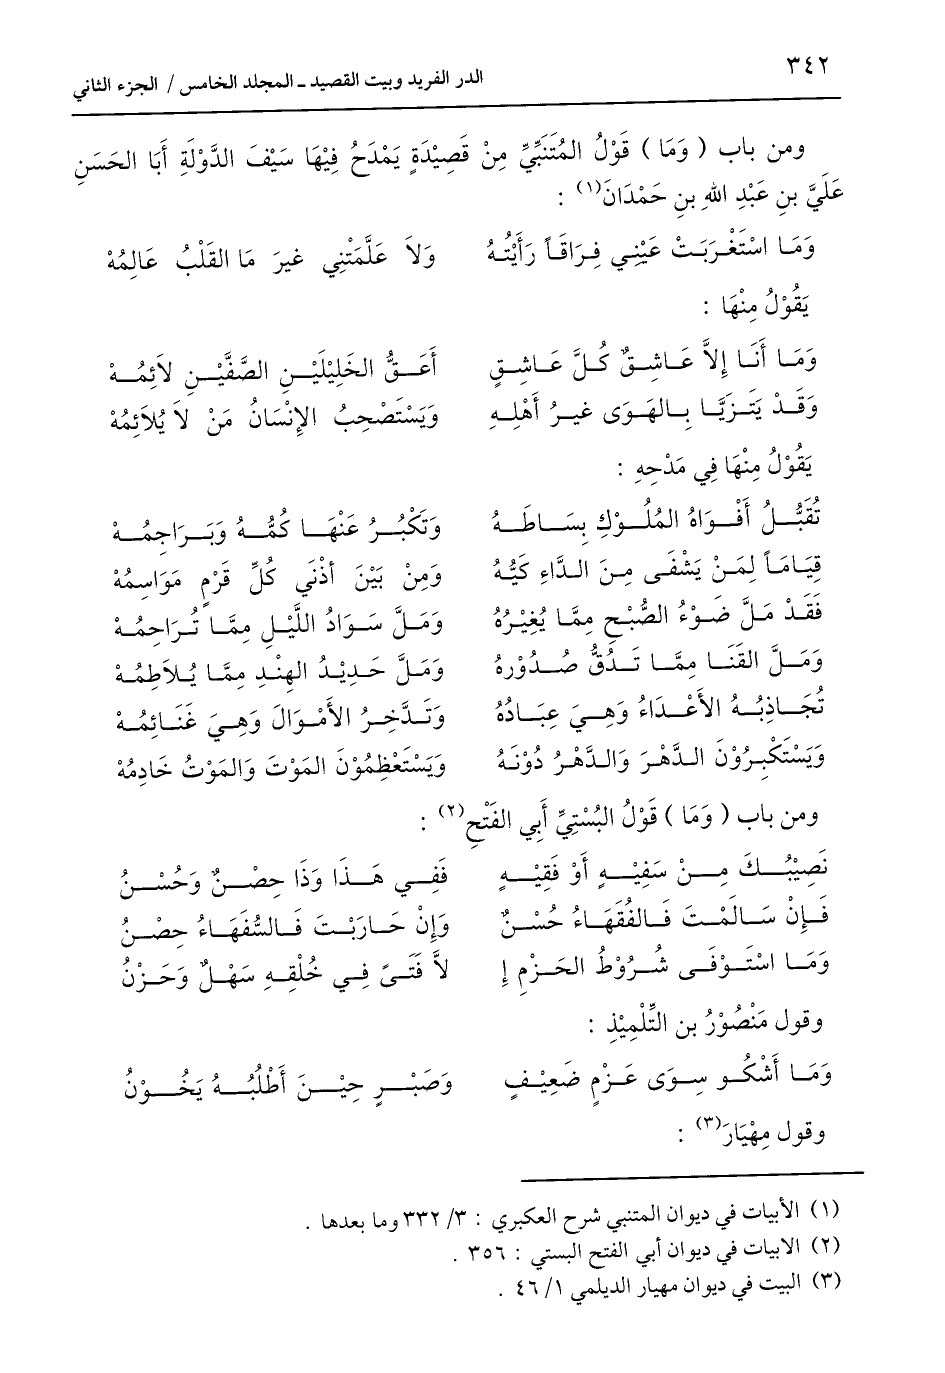 ٣٤٢
الدر الفريد وبيت القصيد ـ المجلد الخامس / الجزء الثاني
ومن باب ( وَمَا ) قَوْلُ المُتَنَبِّيِّ مِنْ قَصِيْدَةٍ يَمْدَحُ فِيْهَا سَيْفَ الدَّوْلَةِ أَبَا الحَسَنِ
عَلَيَّ بنِ عَبْدِ اللهِ بنِ حَمْدَانَ(١) :
وَمَا اسْتَغْرَبَتْ عَيْنِي فِرَاقَاً رَأَيْتُهُ وَلاَ عَلَّمَتْنِي غيرَ مَا القَلْبُ عَالِمُهْ
يَقُوْلُ مِنْهَا :
وَمَا أَنَا إِلاَّ عَاشِقٌ كُلَّ عَاشِقٍ أَعَقُّ الخَلِيْلَيْنِ الصَّفَّيْنِ لاَئِمُهْ
وَقَدْ يَتَزَيَّا بِالهَوَى غيرُ أَهْلِهِ وَيَسْتَصْحِبُ الإِنْسَانُ مَنْ لاَ يُلاَئِمُهْ
يَقُوْلُ مِنْهَا فِي مَدْحِهِ :
تُقَبُّلُ أَفْوَاهُ المُلُوْكِ بِسَاطَهُ وَتَكْبُرُ عَنْهَا كُمُّهُ وَبَرَاجِمُهْ
قِيَامَاً لِمَنْ يَشْفَى مِنَ الدَّاءِ كَيُّهُ وَمِنْ بَيْنَ أذْنَي كُلِّ قَرْمٍ مَوَاسِمُهْ
فَقَدْ مَلَّ ضَوْءُ الصُّبْحِ مِمَّا يُغِيْرُهُ وَمَلَّ سَوَادُ اللَّيْلِ مِمَّا تُرَاحِمُهْ
وَمَلَّ القَنَا مِمَّا تَدُقُّ صُدُوْرهُ وَمَلَّ حَدِيْدُ الهِنْدِ مِمَّا يُلاَطِمُهْ
تُجَاذِبُهُ الأَعْدَاءُ وَهِيَ عِبَادُهُ وَتَدَّخِرُ الأَمْوَالَ وَهِيَ غَنَائِمُهْ
وَيَسْتَكْبِرُوْنَ الدَّهْرَ وَالدَّهْرُ دُوْنَهُ وَيَسْتَعْظِمُوْنَ المَوْتَ وَالمَوْتُ خَادِمُهْ
ومن باب ( وَمَا ) قَوْلُ البُسْتِيِّ أَبِي الفَتْحِ(٢) :
نَصِيْبُكَ مِنْ سَفِيْهٍ أَوْ فَقِيْهٍ فَفِي هَذَا وَذَا حِصْنٌ وَحُسْنُ
فَإِنْ سَالَمْتَ فَالفُقَهَاءُ حُسْنٌ وَإِنْ حَارَبْتَ فَالسُّفَهَاءُ حِصْنُ
وَمَا اسْتَوْفَى شُرُوْطُ الحَزْمِ إِ لاَّ فَتَىً فِي خُلْقِهِ سَهْلٌ وَحَزْنُ
وقول مَنْصُوْرُ بن التِّلْمِيْذِ :
وَمَا أَشْكُو سِوَى عَزْمٍ ضَعِيْفٍ وَصَبْرٍ حِيْنَ أَطْلُبُهُ يَخُوْنُ
وقول مِهْيَارَ(٣) :
(١) الأبيات في ديوان المتنبي شرح العكبري : ٣/ ٣٣٢ وما بعدها .
(٢) الابيات في ديوان أبي الفتح البستي : ٣٥٦ .
(٣) البيت في ديوان مهيار الديلمي ١/ ٤٦ .